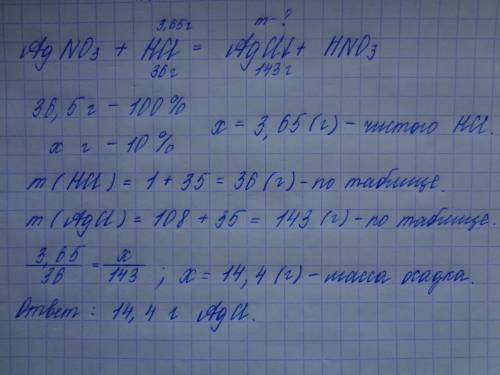 3,65г m-?
AgNO₃ + HCl = AgCl↓ + HNO₃
36г 143г
36,5г - 100%
x г - 10%
x = 3,65 (г) - чистого HCl
m(HCl) = 1 + 35 = 36 (г) - по таблице.
m(AgCl) = 108 + 35 = 143 (г) - по таблице.
3,65/36 = x/143 ; x = 14,4 (г) - масса осадка.
Ответ: 14,4 г AgCl.